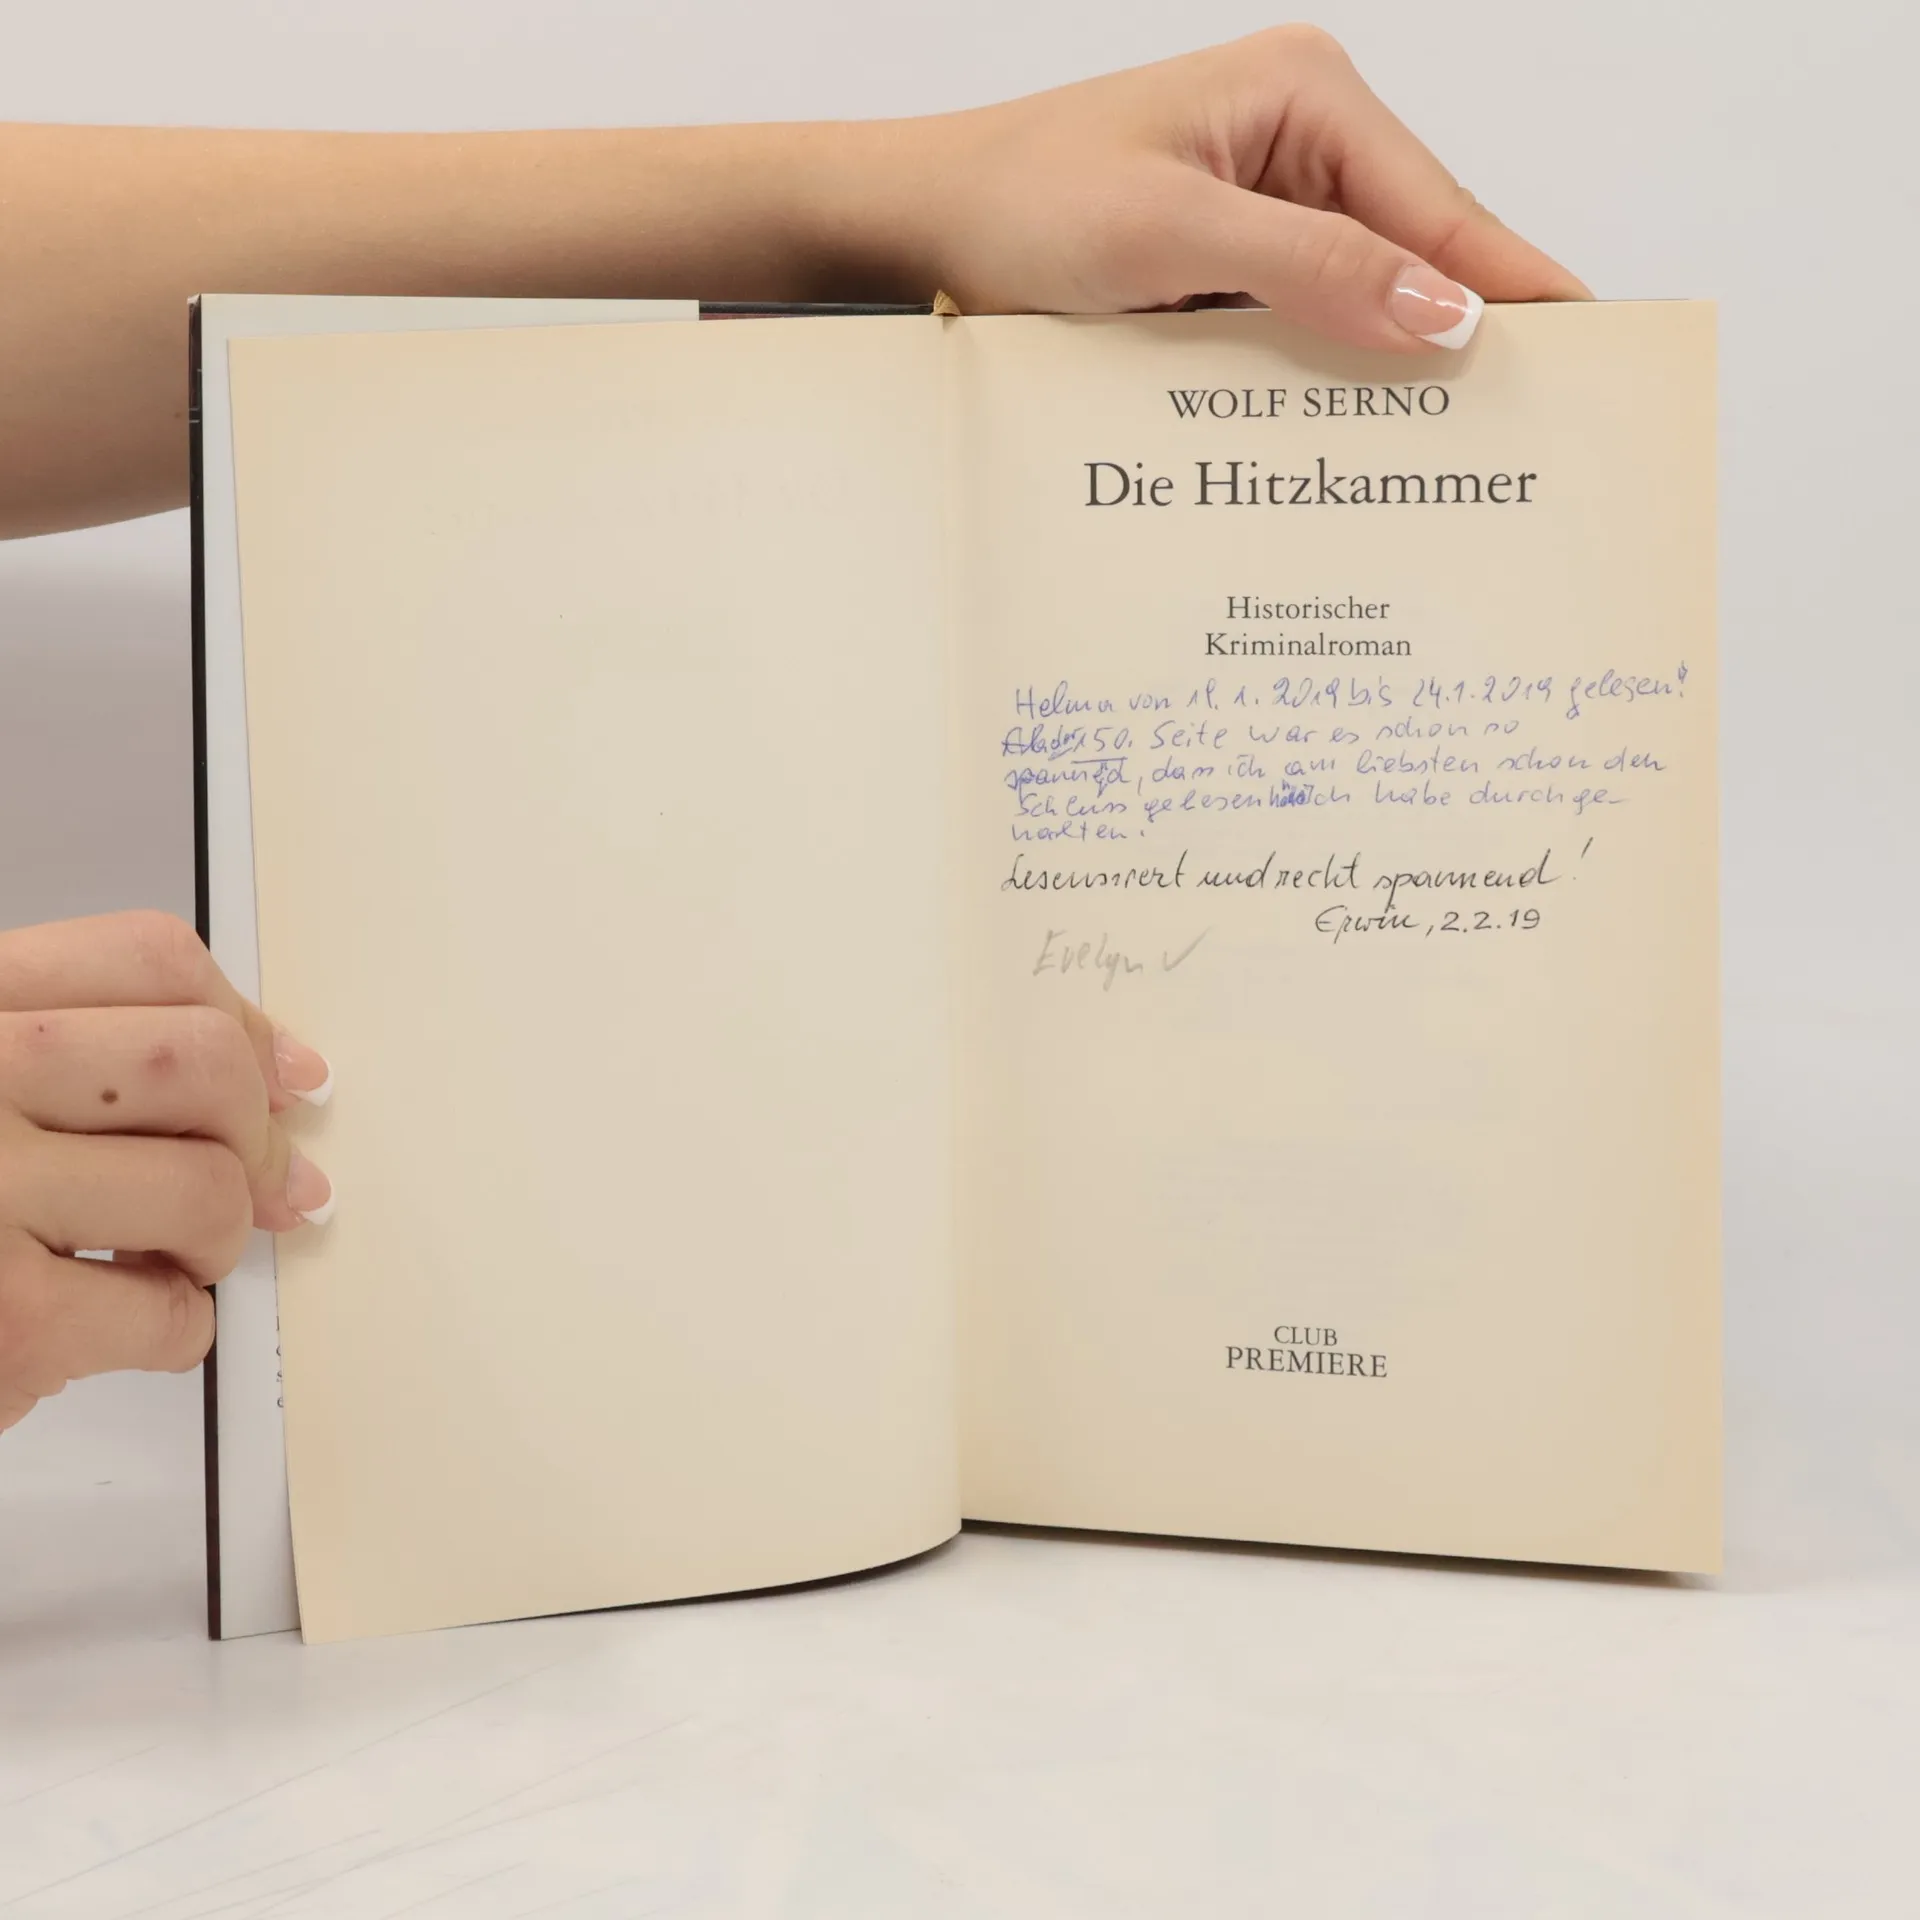 WOLF SERNO
Die Hitzkammer
Historischer
Kriminalroman
Helma von 19. 1. 2019 bis 24.1.2019 gelesen!
150. Seite war es schon so
spannend, dass ich am liebsten schon den
Schluss gelesen ich habe durchge-
halten.
Lesenswert und recht spannend!
Erwin, 2.2.19
Evelyn ✓
CLUB
PREMIERE